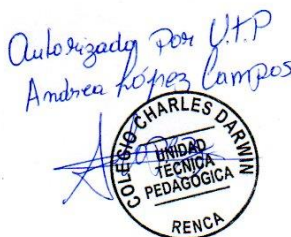 Autorizado por U.T.P
Andrea López Campos
COLEGIO CHARLES DARWIN
UNIDAD
TECNICA
PEDAGOGICA
RENCA